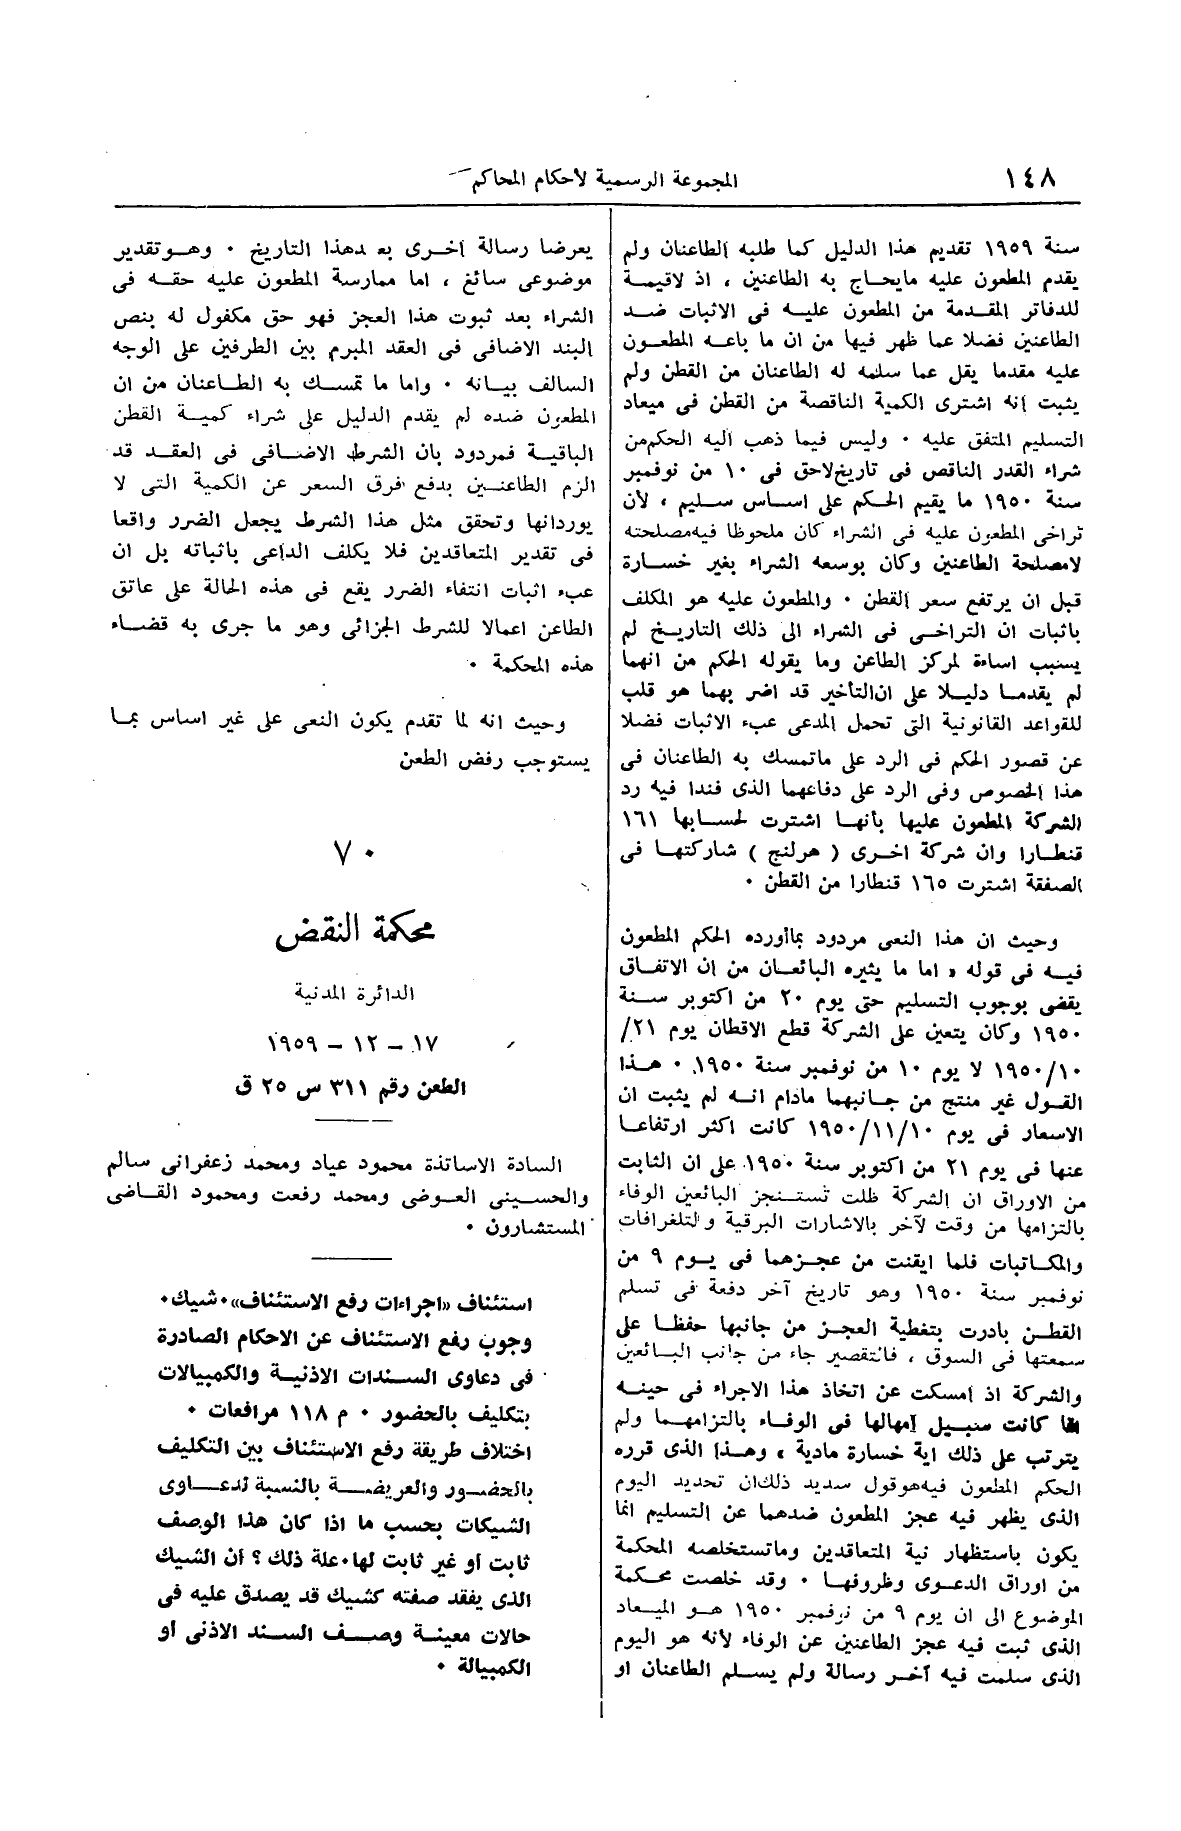 ١٤٨
المجموعة الرسمية لأحكام المحاكم
سنة ١٩٥٩ تقديم هذا الدليل كما طلبه الطاعنان ولم
يقدم المطعون عليه مايحاج به الطاعنين ، اذ لاقيمة
للدفاتر المقدمة من المطعون عليه فى الاثبات ضد
الطاعنين فضلا عما ظهر فيها من ان ما باعه المطعون
عليه مقدما يقل عما سلمه له الطاعنان من القطن ولم
يثبت انه اشترى الكمية الناقصة من القطن فى ميعاد
التسليم المتفق عليه ٠ وليس فيما ذهب اليه الحكم من
شراء القدر الناقص فى تاريخ لاحق فى ١٠ من نوفمبر
سنة ١٩٥٠ ما يقيم الحكم على اساس سليم ، لأن
تراخى المطعون عليه فى الشراء كان ملحوظا فيه مصلحته
لامصلحة الطاعنين وكان بوسعه الشراء بغير خسارة
قبل ان يرتفع سعر القطن ٠ والمطعون عليه هو المكلف
باثبات ان التراخى فى الشراء الى ذلك التاريخ لم
يسبب اساءة لمركز الطاعن وما يقوله الحكم من انهما
لم يقدما دليلا على ان التأخير قد اضر بهما هو قلب
للقواعد القانونية التى تحمل المدعى عبء الاثبات فضلا
عن قصور الحكم فى الرد على ماتمسك به الطاعنان فى
هذا الخصوص وفى الرد على دفاعهما الذى فندا فيه رد
الشركة المطعون عليها بأنها اشترت لحسابها ١٦١
قنطارا وان شركة اخرى ( هرلنج ) شاركتها فى
الصفقة اشترت ١٦٥ قنطارا من القطن ٠
وحيث ان هذا النعى مردود بماأورده الحكم المطعون
فيه فى قوله « اما ما يثيره البائعان من ان الاتفاق
يقضى بوجوب التسليم حتى يوم ٢٠ من اكتوبر سنة
١٩٥٠ وكان يتعين على الشركة قطع الاقطان يوم ٢١/
١٩٥٠/١٠ لا يوم ١٠ من نوفمبر سنة ١٩٥٠ ٠ هذا
القول غير منتج من جانبهما مادام انه لم يثبت ان
الاسعار فى يوم ١٩٥٠/١١/١٠ كانت اكثر ارتفاعا
عنها فى يوم ٢١ من اكتوبر سنة ١٩٥٠ على ان الثابت
من الاوراق ان الشركة ظلت تستنجز البائعين الوفاء
بالتزامها من وقت لآخر بالاشارات البرقية والتلغرافات
والمكاتبات فلما ايقنت من عجزهما فى يوم ٩ من
نوفمبر سنة ١٩٥٠ وهو تاريخ آخر دفعة فى تسلم
القطن بادرت بتغطية العجز من جانبها حفظا على
سمعتها فى السوق ، فالتقصير جاء من جانب البائعين
والشركة اذ امسكت عن اتخاذ هذا الاجراء فى حينه
انما كانت سبيل امهالها فى الوفاء بالتزامهما ولم
يترتب على ذلك اية خسارة مادية » وهذا الذى قرره
الحكم المطعون فيه هو قول سديد ذلك ان تحديد اليوم
الذى يظهر فيه عجز المطعون ضدهما عن التسليم انما
يكون باستظهار نية المتعاقدين وماتستخلصه المحكمة
من اوراق الدعوى وظروفها ٠ وقد خلصت محكمة
الموضوع الى ان يوم ٩ من نوفمبر ١٩٥٠ هو الميعاد
الذى ثبت فيه عجز الطاعنين عن الوفاء لأنه هو اليوم
الذى سلمت فيه آخر رسالة ولم يسلم الطاعنان او
يعرضا رسالة اخرى بعد هذا التاريخ ٠ وهو تقدير
موضوعى سائغ ، اما ممارسة المطعون عليه حقه فى
الشراء بعد ثبوت هذا العجز فهو حق مكفول له بنص
البند الاضافى فى العقد المبرم بين الطرفين على الوجه
السالف بيانه ٠ واما ما تمسك به الطاعنان من ان
المطعون ضده لم يقدم الدليل على شراء كمية القطن
الباقية فمردود بان الشرط الاضافى فى العقد قد
الزم الطاعنين بدفع فرق السعر عن الكمية التى لا
يوردانها وتحقق مثل هذا الشرط يجعل الضرر واقعا
فى تقدير المتعاقدين فلا يكلف الداعى باثباته بل ان
عبء اثبات انتفاء الضرر يقع فى هذه الحالة على عاتق
الطاعن اعمالا للشرط الجزائى وهو ما جرى به قضاء
هذه المحكمة ٠
وحيث انه لما تقدم يكون النعى على غير اساس بما
يستوجب رفض الطعن
٧٠
محكمة النقض
الدائرة المدنية
١٧ – ١٢ – ١٩٥٩
الطعن رقم ٣١١ س ٢٥ ق
السادة الاساتذة محمود عياد ومحمد زعفرانى سالم
والحسينى العوضى ومحمد رفعت ومحمود القاضى
المستشارون ٠
استئناف «اجراءات رفع الاستئناف» ٠ شيك ٠
وجوب رفع الاستئناف عن الاحكام الصادرة
فى دعاوى السندات الاذنية والكمبيالات
بتكليف بالحضور ٠ م ١١٨ مرافعات ٠
اختلاف طريقة رفع الاستئناف بين التكليف
بالحضور والعريضة بالنسبة لدعاوى
الشيكات بحسب ما اذا كان هذا الوصف
ثابت او غير ثابت لها ٠ علة ذلك ؟ ان الشيك
الذى يفقد صفته كشيك قد يصدق عليه فى
حالات معينة وصف السند الاذنى او
الكمبيالة ٠